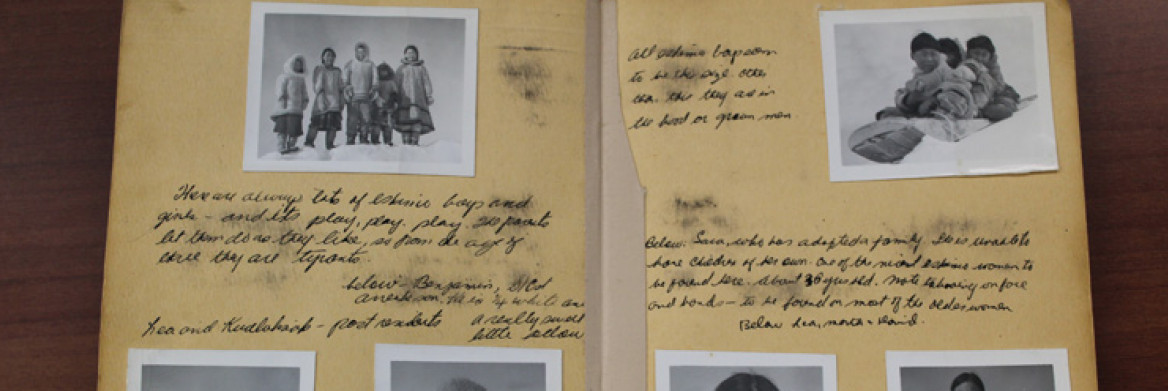 Here are always lots of Eskimo boys and
girls - and its play, play, play. The parents
let them do as they like, so from the age of
they are tyrants.
below - Benjamin,
son. He is 1/4 white and
Lea and - post residents a really sweet
little fellow
All eskimo boys
to be this size. Other
than this they are in
the hood or grown men.
Below. Sara, who has adopted a family. She is unable to
have children of her own. One of the nicest eskimo women to
be found here. About 36 years old. Note tatooing on face
and hands - to be found on most of the older women
Below Lea, Martha + David.